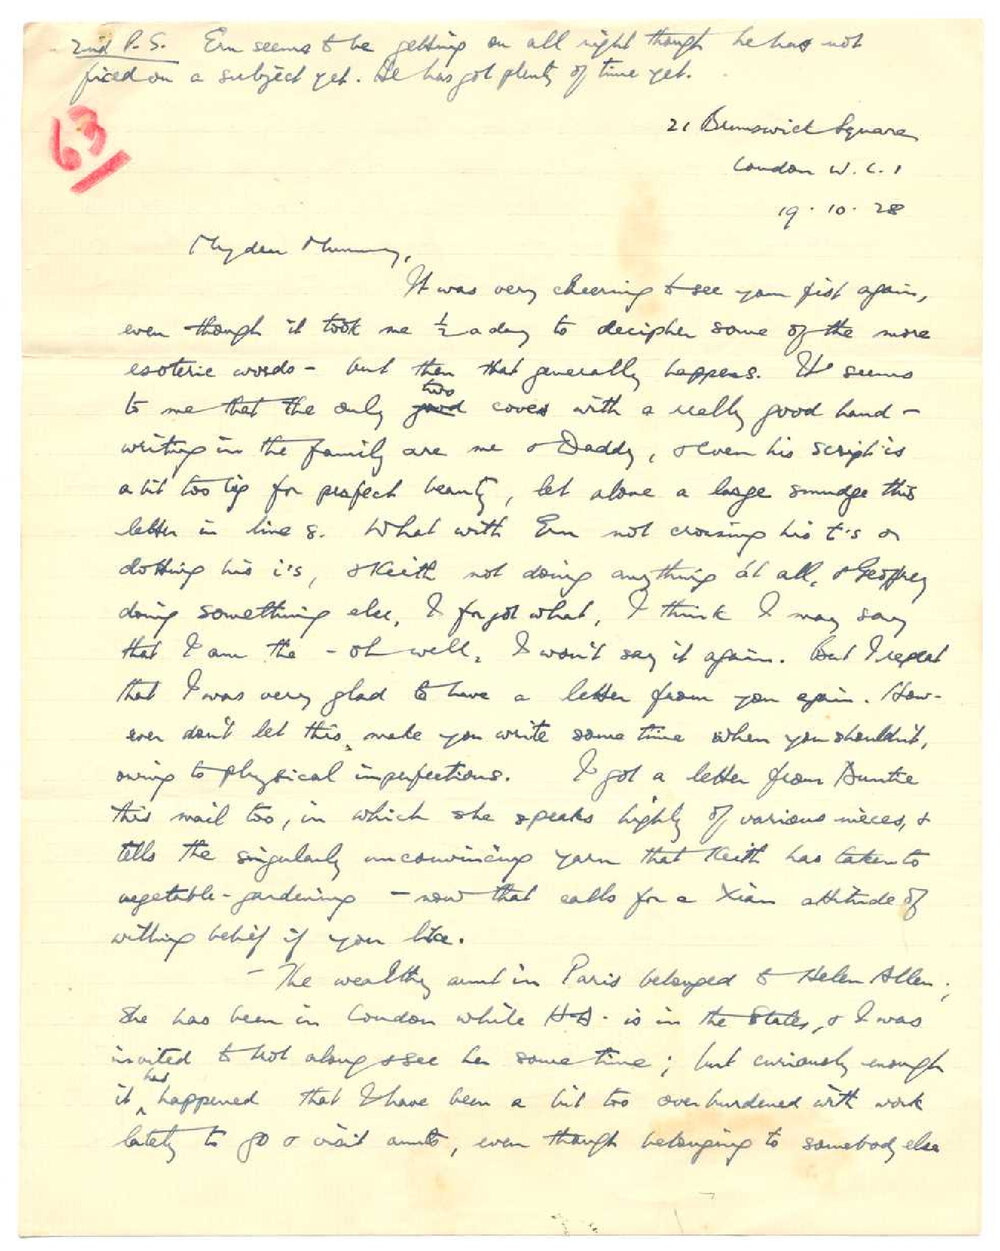 2nd P.S. Ern seems to be getting on all right though he has not
fixed on a subject yet. He has got plenty of time yet.
63
21 Brunswick Square
London W.C.1
19.10.28
My dear Mummy,
It was very cheering to see your fist again,
even though it took me ½ a day to decipher some of the more
esoteric words - but then that generally happens. It seems
two
to me that the only good coves with a really good hand-
writing in the family are me & Daddy, & even his script is
a bit too big for perfect beauty, let alone a large smudge this
letter in line 8. What with Ern not crossing his t's or
dotting his i's, & Keith not doing anything at all, & Geoffrey
doing something else, I forgot what, I think I may say
that I am the - oh well, I won't say it again. But I repeat
that I was very glad to have a letter from you again. How-
ever don't let this make you write some time when you shouldn't,
owing to physical imperfections. I got a letter from Auntie
this mail too, in which she speaks highly of various nieces, &
tells the singularly unconvincing yarn that Keith has taken to
vegetable-gardening - now that calls for a Xian attitude of
willing belief if you like.
- The wealthy aunt in Paris belonged to Helen Allen;
she has been in London while H.A. is in the States, & I was
invited to trot along & see her some time; but curiously enough
has
it happened that I have been a bit too overburdened with work
lately to go & visit aunts, even though belonging to somebody else